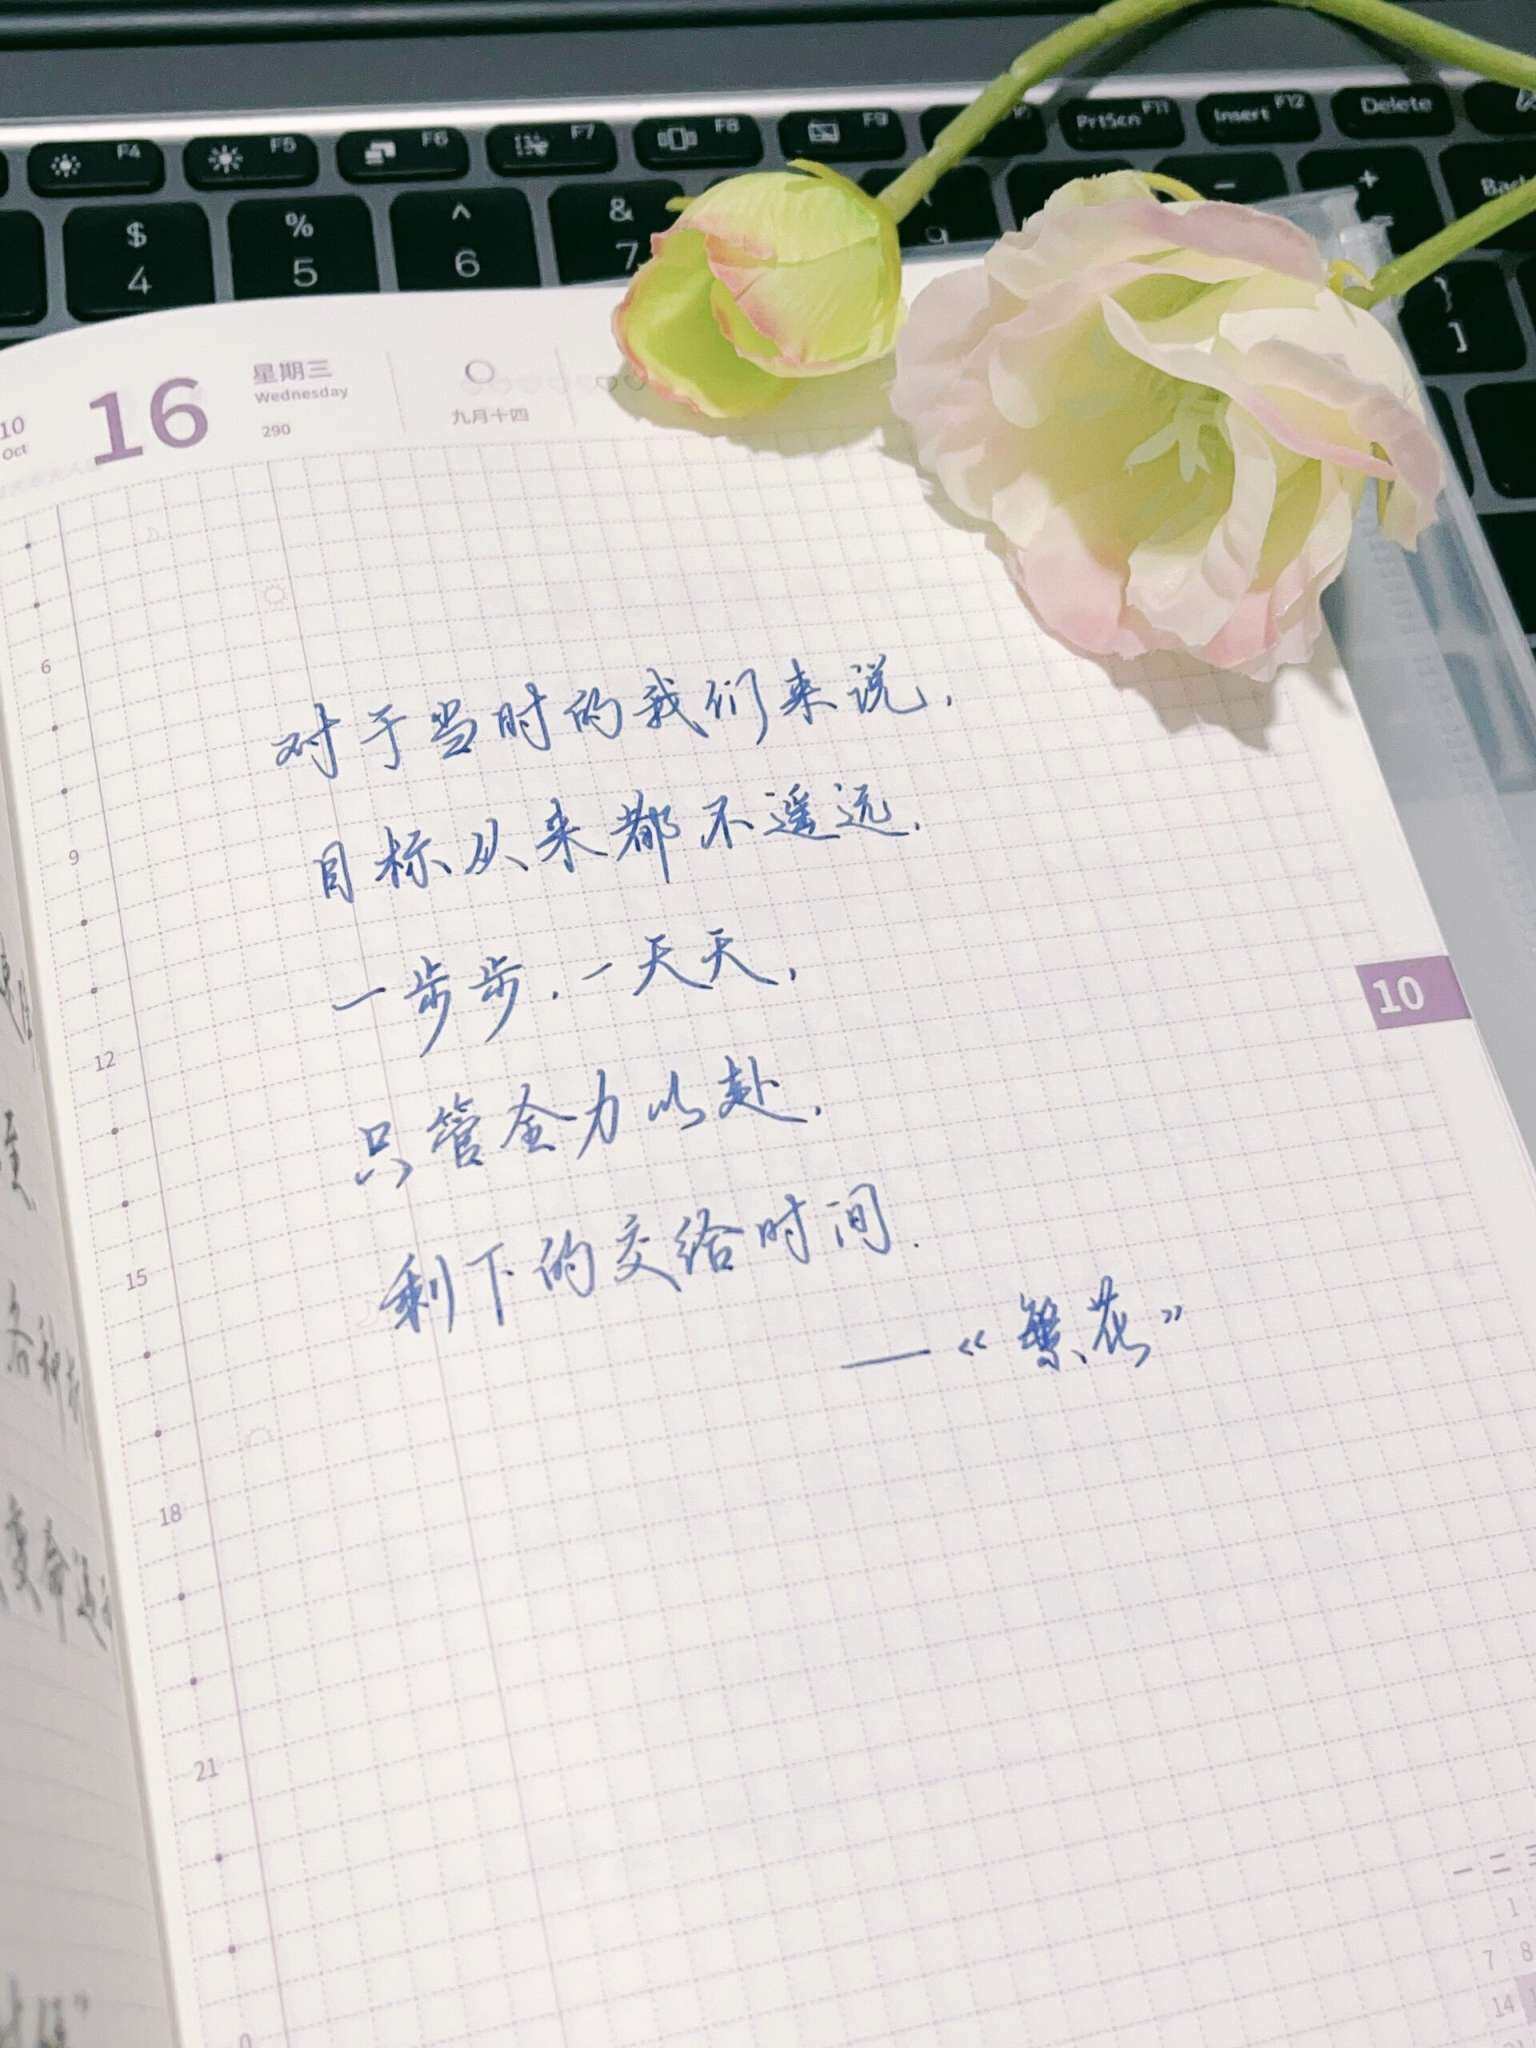 F4 F5 F6 F7 F8 F9 PrtScn F11 Insert F12 Delete
$ % ^ & +
4 5 6 7 9 - =
} ]
10 Oct 16 星期三 Wednesday 290 九月十四
6
对于当时的我们来说，
目标从来都不遥远.
9
一步步.一天天，
10
12
只管全力以赴.
15
剩下的交给时间.
——《繁花》
各种
18
21
0
一 二 三
1
7 8
14